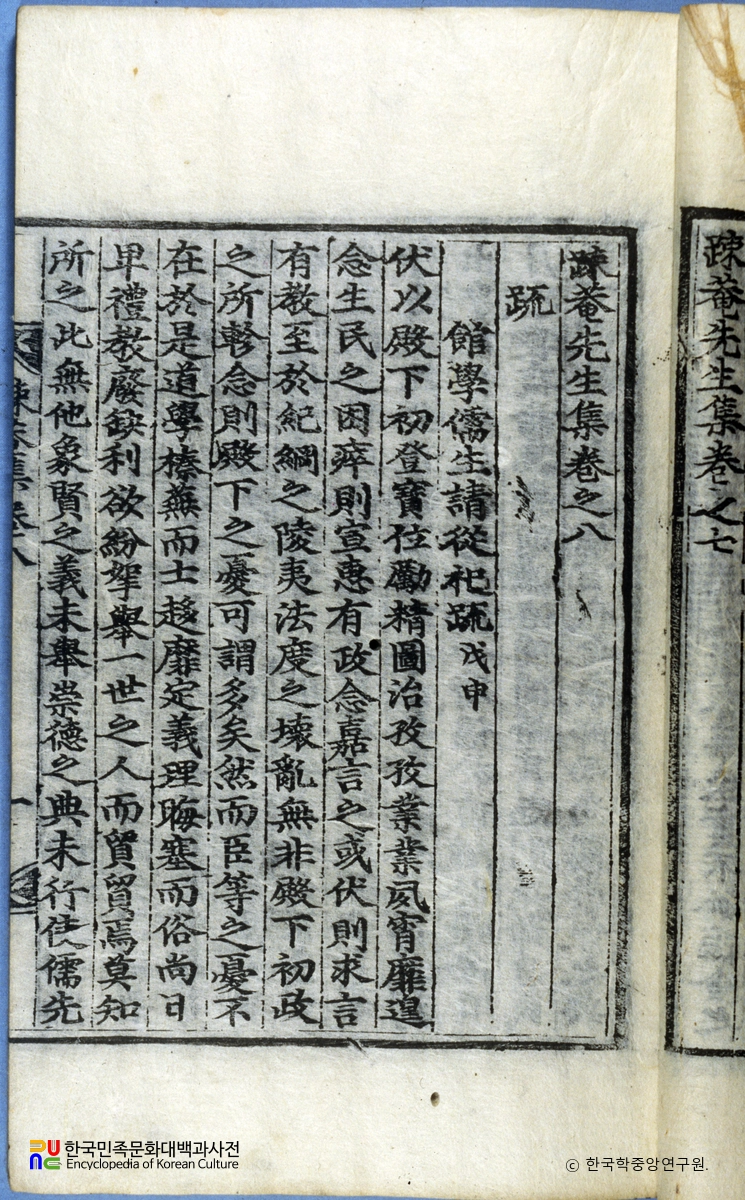 疎菴先生集卷之七
疎菴先生集卷之八
疏
館學儒生請從祀疏 戊申
伏以殿下初登寶位勵精圖治孜孜業業夙宵靡遑
念生民之困瘁則宣惠有政念嘉言之或伏則求言
有敎至於紀綱之陵夷法度之壞亂無非殿下初政
之所軫念則殿下之憂可謂多矣然而臣等之憂不
在於是道學榛蕪而士趍靡定義理晦塞而俗尚日
卑禮敎廢缺利欲紛挐擧一世之人而貿貿焉莫知
所之此無他象賢之義未擧崇德之典未行使儒先
疎菴集卷八
一
한국민족문화대백과사전
Encyclopedia of Korean Culture
© 한국학중앙연구원.